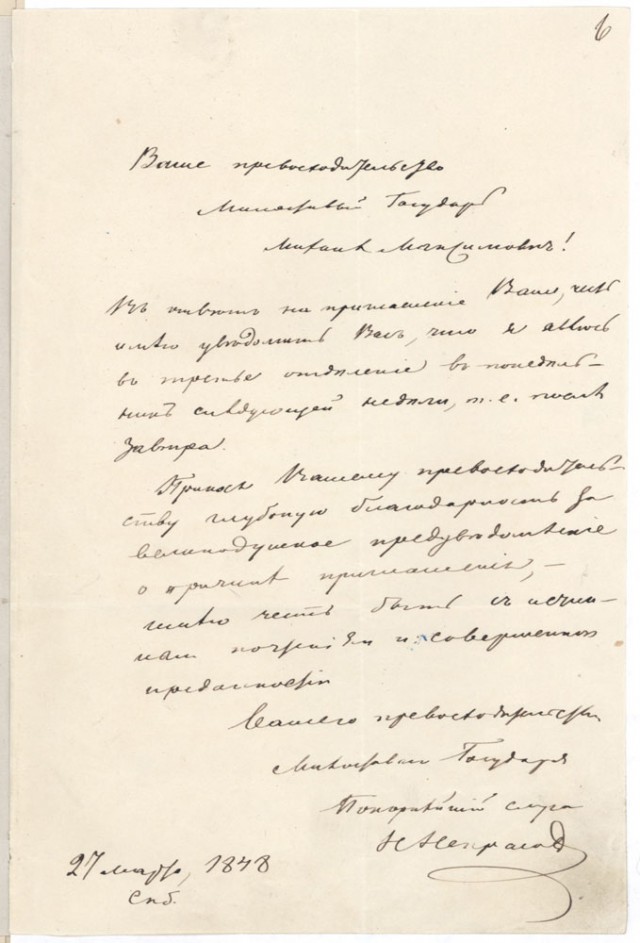 6
Ваше превосходительство
Милостивый Государь
Михаил Максимович!
Въ ответъ на приглашение Ваше, честь
имею уведомить Васъ, что я явлюсь
въ третье отделение въ понедель-
никъ следующей недели, т. е. после
завтра.
Приношу Вашему превосходитель-
ству глубокую благодарность за
великодушное предуведомленіе
о причине приглашенія, –
имею честь быть съ истин-
нымъ почтеніемъ и совершенною
преданностію
Вашего превосходительства
Милостиваго Государя
Покорнейшій слуга
Н Некрасов
27 марта, 1848
Спб.